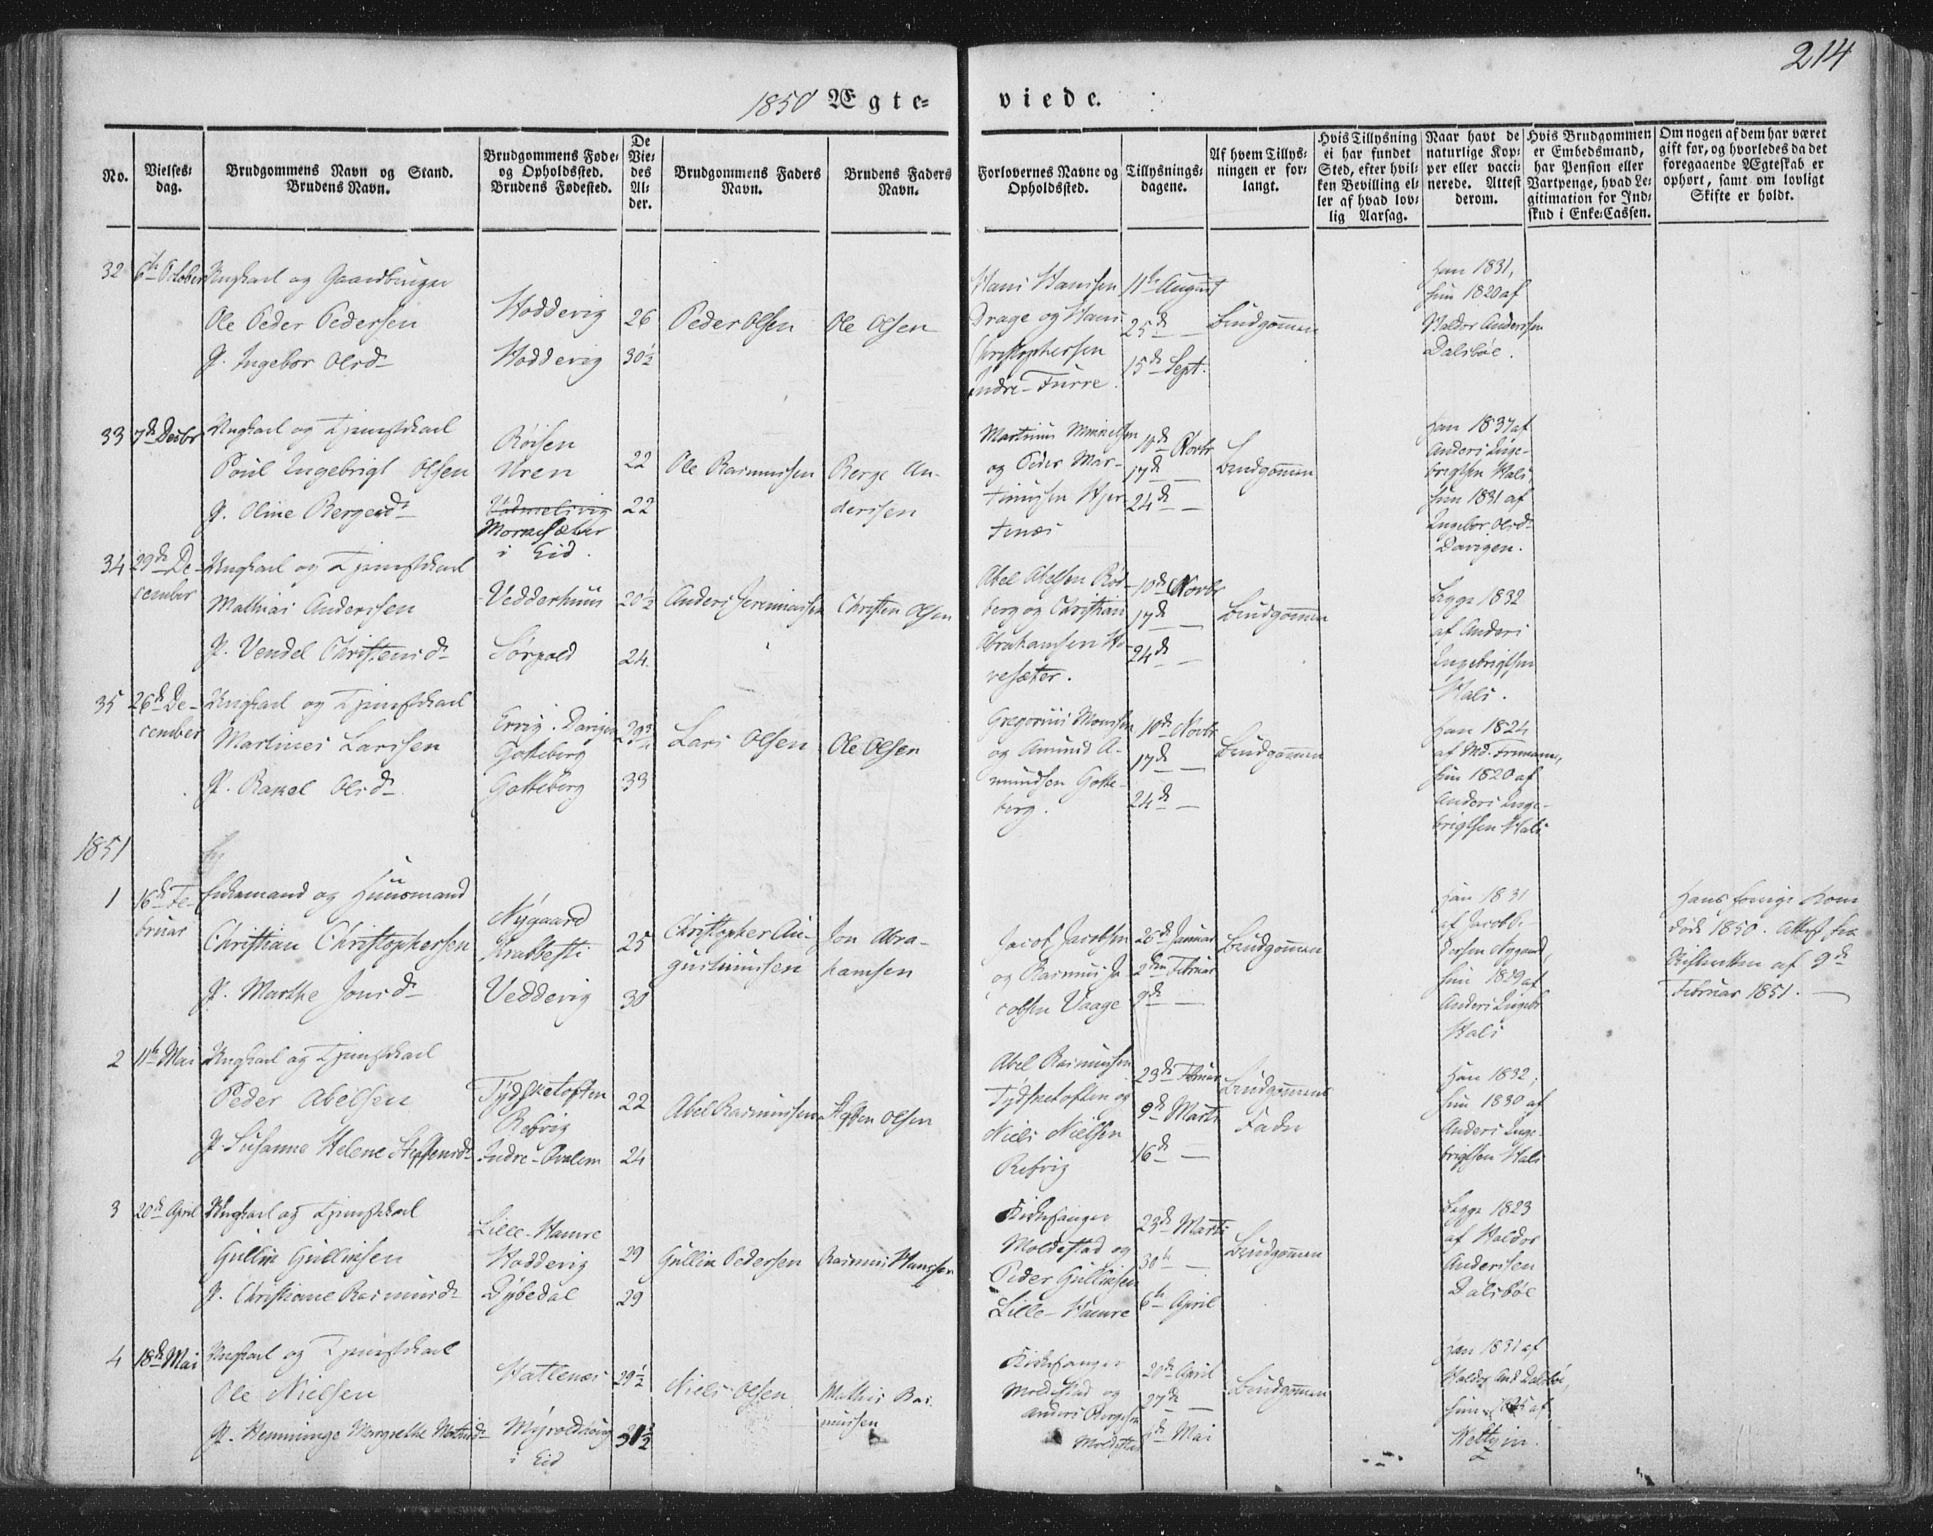 214
1850 Ægte- viede.
No.
Vielses-
dag.
Brudgommens Navn og Stand.
Brudens Navn.
Brudgommens Føde-
og Opholdssted.
Brudens Fødested.
De
Vie-
des
Al-
der.
Brudgommens Faders
Navn.
Brudens Faders
Navn.
Forlovernes Navne og
Opholdssted.
Tillysnings-
dagene.
Af hvem Tillys-
ningen er for-
langt.
Hvis Tillysning
ei har fundet
Sted, efter hvil-
ken Bevilling el-
ler af hvad lov-
lig Aarsag.
Naar havt de
naturlige Kop-
per eller vacci-
nerede. Attest
derom.
Hvis Brudgommen
er Embedsmand,
har Pension eller
Vartpenge, hvad Le-
gitimation for Ind-
skud i Enke-Cassen.
Om nogen af dem har været
gift før, og hvorledes da det
foregaaende Ægteskab er
ophørt, samt om lovligt
Skifte er holdt.
32
6te October
Ungkarl og Gaardbruger
Ole Peder Pedersen
P. Ingebor Olsd
Hoddevig
Hoddevig
26
30½
Peder Olsen
Ole Olsen
Hans Hansen
Drage og Hans
Christophersen
Indre-Furre.
11te August
25de —
15de Sept.
Brudgommen
Han 1831,
hun 1820 af
Haldor Anderssen
Dalsbøe.
33
7de Decbr
Ungkarl og Tjenestekarl
Poul Ingebrigt Olsen
P. Oline Bergesd
Røisen
Uren
Morkesæter
i Eid.
22
22
Ole Rasmussen
Berge An-
derssen
Martinus Mikkelsen
og Peder Mar-
tinussen Hjer-
tenæs
10de Novbr
17de —
24de —
Brudgommen
Han 1837 af
Anders Inge-
brigtsen Hals,
hun 1831 af
Ingebor Olsd
Davigen.
34
29de De-
cember
Ungkarl og Tjenestekarl
Mathias Anderssen
P. Vendel Christensd
Vedderhuus
Sørpold
20½
24
Anders Jeremiassen
Christen Olsen
Abel Abelsen Rød-
berg og Christian
Abrahamsen Ho-
vesæter.
10de Novbr
17de —
24de —
Brudgommen
Begge 1832
af Anders
Ingebrigtsen
Hals.
35
26de De-
cember
Ungkarl og Tjenestekarl
Martines Larssen
P. Rakel Olsd
Ervig. Davigen
Gotteberg
Gotteberg
29¾
33
Lars Olsen
Ole Olsen
Gregorius Monssen
og Amund A-
mundsen Gotte-
berg.
10de Novbr
17de —
24de —
Brudgommen
Han 1824
af Md. Frimann,
hun 1820 af
Anders Inge-
brigtsen Hals
1851
1
16de Fe-
bruar
Enkemand og Huusmand
Christian Christophersen
P. Marthe Jonsd
Nygaard
Krabbesti
Veddevig
25
30
Christopher Au-
gustinussen
Jon Abra-
hamsen
Jacob Jacobsen
og Rasmus Ja-
cobsen Vaage
26de Januar
2den Februar
9de —
Brudgommen
Han 1831
af Jacob
Nygaard,
hun 1829 af
Anders Ingebr.
Hals
Hans forrige Kone
døde 1850. Attest fra
Skifteretten af 9de
Februar 1851. —
2
11te Mai
Ungkarl og Tjenestekarl
Peder Abelsen
P. Susanne Helene Steffensd
Tydsketoften
Refvig
Indre-Qvalem
22
24
Abel Rasmussen
Steffen Olsen
Abel Rasmussen
Tydsketoften og
Niels Nielsen
Refvig
23de Februar
9de Marts
16de —
Brudgommens
Fader
Han 1832,
hun 1830 af
Anders Inge-
brigtsen Hals
3
20de April
Ungkarl og Tjenestekarl
Gullik Gulliksen
P. Christiane Rasmusd
Lille-Hamre
Hoddevig
Dybedal
29
29
Gullik Pedersen
Rasmus Hanssen
Kirkesanger
Moldestad og
Peder Gulliksen
Lille-Hamre
23de Marts
30te —
6te April
Brudgommen
Begge 1823
af Haldor
Anderssen
Dalsbøe
4
18de Mai
Ungkarl og Tjenestekarl
Ole Nielsen
P. Henninge Margrethe Mathisd
Hattenæs
Myroldhoug
i Eid
29½
31½
Niels Olsen
Mathis Ras-
mussen
Kirkesanger
Moldestad og
Anders Bergesen
Moldestad
20de April
27de —
de Mai
Brudgommen
Han 1831 af
Haldor And. Dalsbøe,
hun af